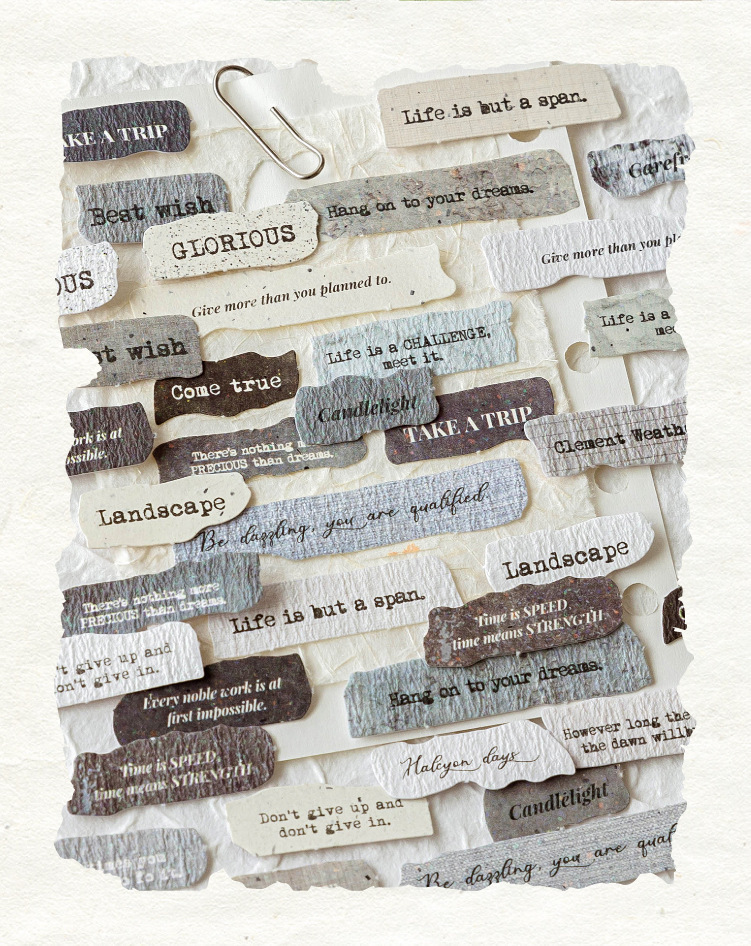 Life is but a span.
AKE A TRIP
Carefr
Best wish
Hang on to your dreams.
GLORIOUS
Give more than you pl
OUS
Give more than you planned to.
Life is a
mee
st wish
Life is a CHALLENGE,
meet it.
Come true
Candlelight
TAKE A TRIP
ork is at
ossible.
Clement Weath
There's nothing m
PRECIOUS than dreams.
Landscape
Be dazzling, you are qualified.
Landscape
There's nothing more
PRECIOUS than dreams.
Life is but a span.
Time is SPEED,
time means STRENGTH.
't give up and
on't give in.
Hang on to your dreams.
Every noble work is at
first impossible.
However long the
the dawn will b
Time is SPEED,
time means STRENGTH.
Halcyon days
Candlelight
Don't give up and
don't give in.
Be dazzling, you are qual
you